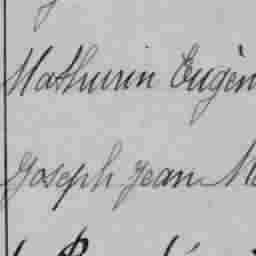 Mathurin Eugèn
Joseph Jean M